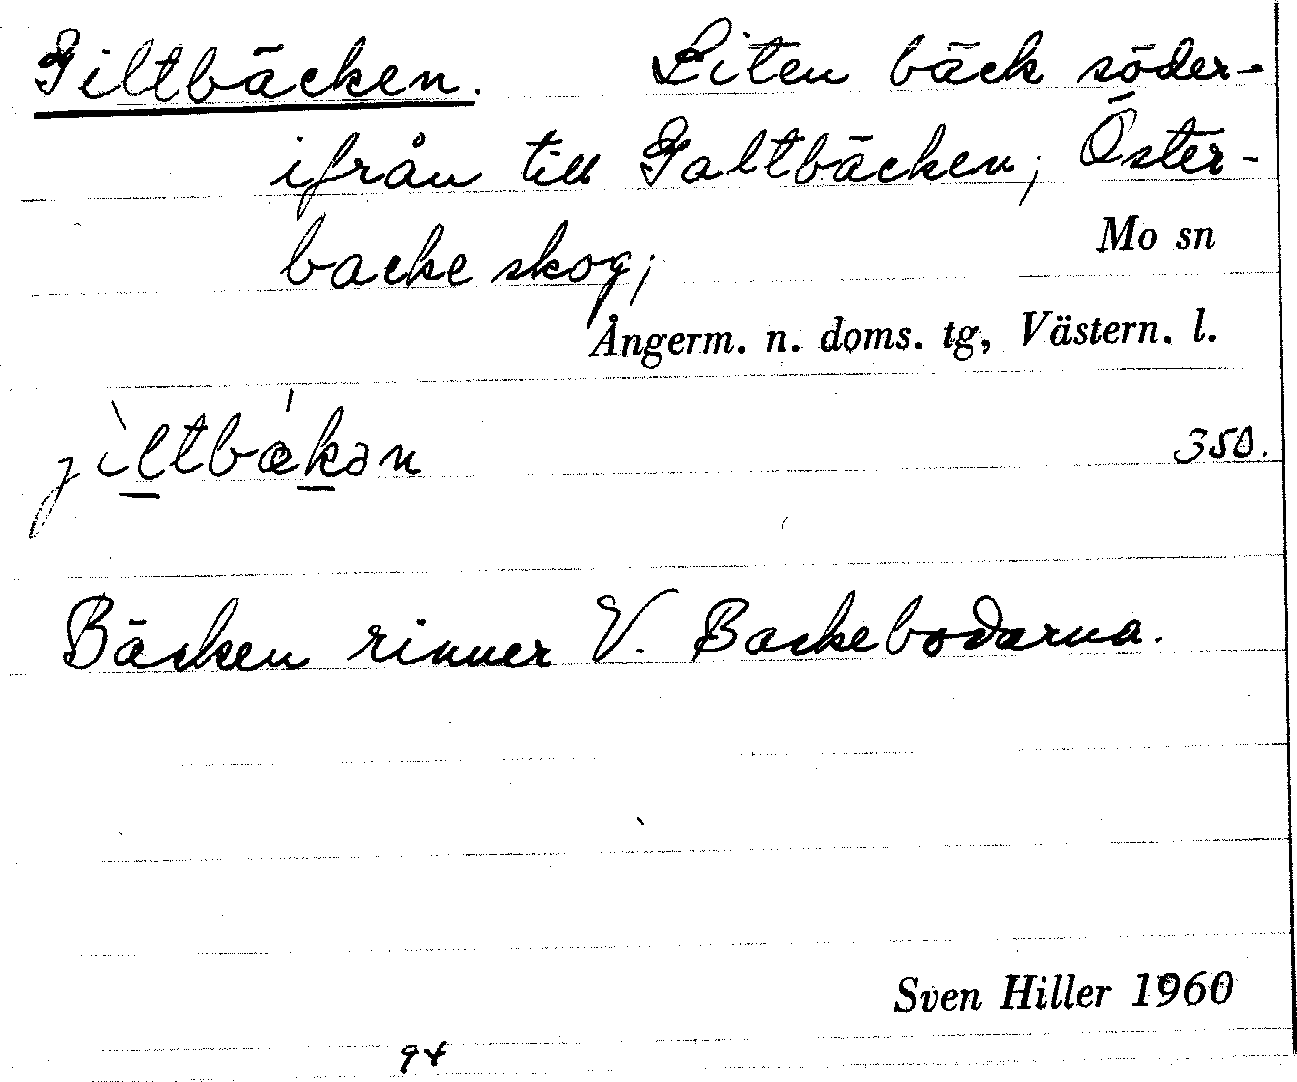 Giltbäcken. Liten bäck söder-
ifrån till Galtbäcken; Öster-
backe skog;
Mo sn
Ångerm. n. doms. tg, Västern. l.
jìltbǽkən 350.
Bäcken rinner V. Backebodarna.
Sven Hiller 1960